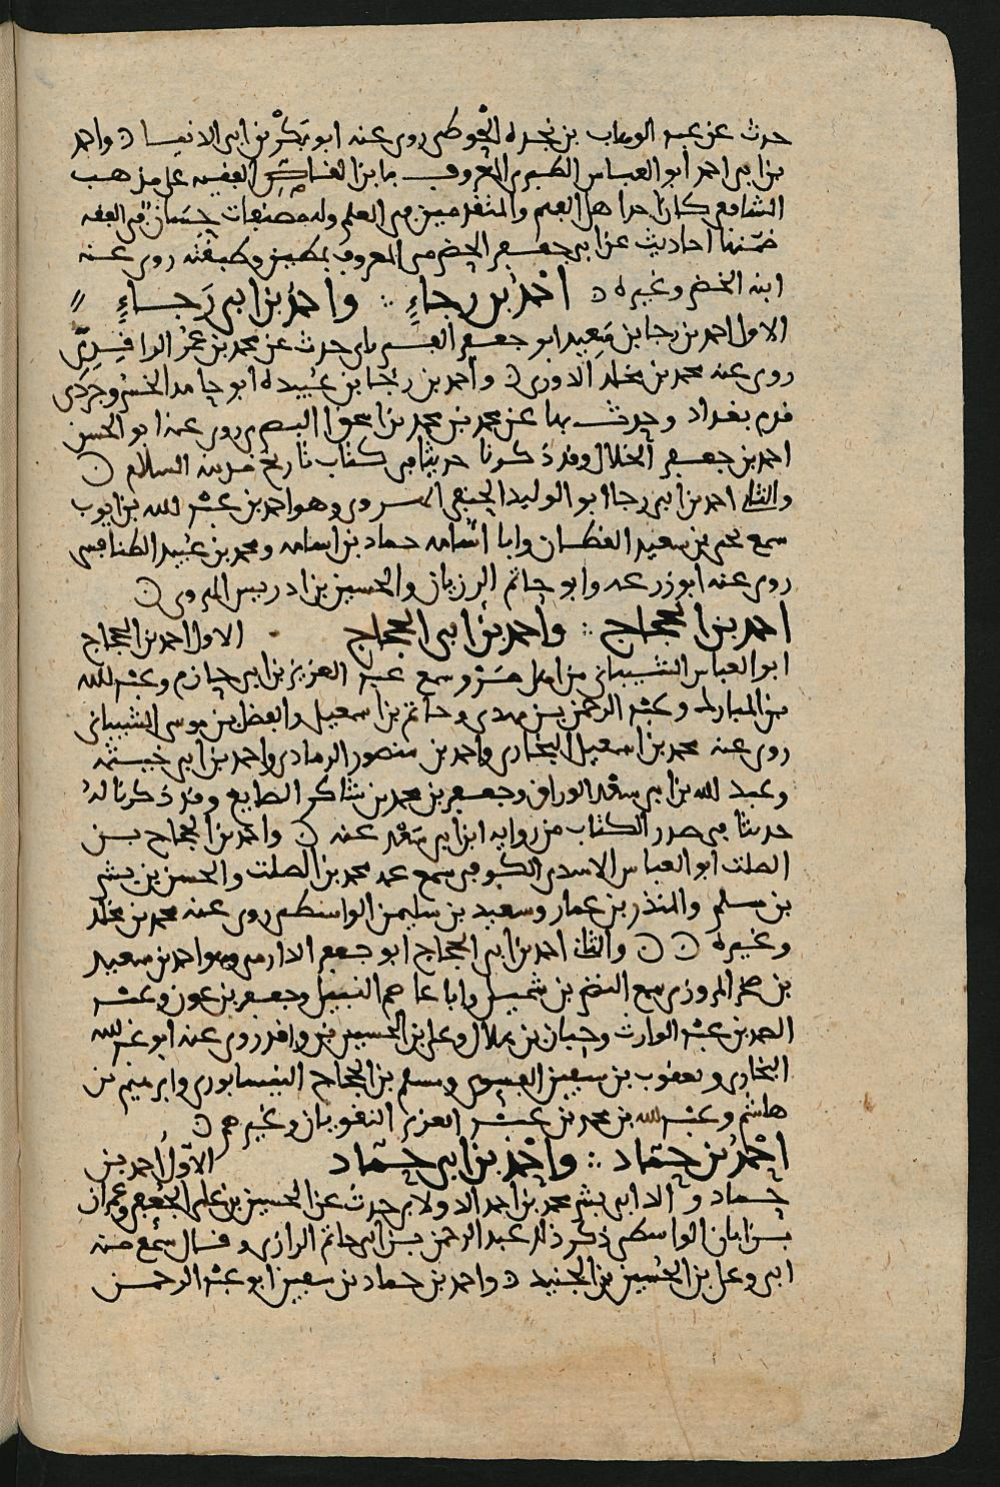 حدث عن عبد الوهاب بن نجده الحوطي روى عنه ابو بكر بن ابي الانيسا ن واحمد
بن ابي احمد ابو العباس الطبري المعروف بابن القاص الفقيه على مذهب
الشافعي كان احد اهل الفهم والمتقدمين في العلم وله مصنفات حسان في الفقه
ضمنها احاديث عن ابي جعفر الحضرمي المعروف بمطين وطبقته روى عنه
ابنه الخضر وغيره ن احمد بن رجاءٍ ∴ واحمد بن ابي رجاءٍ
الاول احمد بن رجا بن سعيد ابو جعفر حدث عن محمد بن عمر الواقدي
روى عنه محمد بن مخلد الدوري ن واحمد بن رجا بن عبيده ابو حامد الخسروجردي
قدم بغداد وحدث بها عن محمد بن محمد بن اسحق البصري روى عنه ابو الحسن
احمد بن جعفر الخلال وقد ذكرنا حديثا في كتاب تاريخ مدينه السلام ن
والثاني احمد بن ابي رجا ابو الوليد الحنفي الهروي وهو احمد بن عبد الله بن ايوب
سمع يحيى بن سعيد القطان وابا اسامه حماد بن اسامه ومحمد بن عبيد الطنافسي
روى عنه ابو زرعه وابو حاتم الرزيان والحسين بن ادريس الهروي ن
احمد بن الحجاج ∴ واحمد بن ابي الحجاج الاول احمد بن الحجاج
ابو العباس الشيباني من اهل مرو سمع عبد العزيز بن ابي حازم وعبد الله
بن المبارك وعبد الرحمن بن مهدي وحاتم بن اسمعيل والفضل بن موسى الشيباني
روى عنه محمد بن اسمعيل البخاري واحمد بن منصور الرمادي واحمد بن ابي خيثمه
وعبد الله بن ابي سعد الوراق وجعفر بن محمد بن شاكر الصايغ وقد ذكرنا له
حديثا في صدر الكتاب من روايه ابن ابي سعد عنه ن واحمد بن الحجاج بن
الصلت ابو العباس الاسدي الكوفي سمع عمه محمد بن الصلت والحسن بن بشر
بن مسلم والمنذر بن عمار وسعيد بن سليمن الواسطي روى عنه محمد بن مخلد
وغيره ن ن والثاني احمد بن ابي الحجاج ابو جعفر الدارمي وهو احمد بن سعيد
بن صخر المروزي سمع النضر بن شميل وابا عاصم النبيل وجعفر بن عون وعبد
الصمد بن عبد الوارث وحبان بن هلال وعلي بن الحسين بن واقد روى عنه ابو عبد الله
البخاري ويعقوب بن سفين الفسوي ومسلم بن الحجاج النيسابوري وابرهيم بن
هاشم وعبد الله بن محمد بن عبد العزيز البغويان وغيرهم ن
احمد بن حماد ∴ واحمد بن ابي حماد الاول احمد بن
حماد والد ابي بشر محمد بن احمد الدولابي حدث عن الحسين بن علي الجعفي وعمران
بن ابان الواسطي ذكر ذلك عبد الرحمن بن ابي حاتم الرازي وقال سمع منه
ابي وعلي بن الحسين بن الجنيد ن واحمد بن حماد بن سفين ابو عبد الرحمن